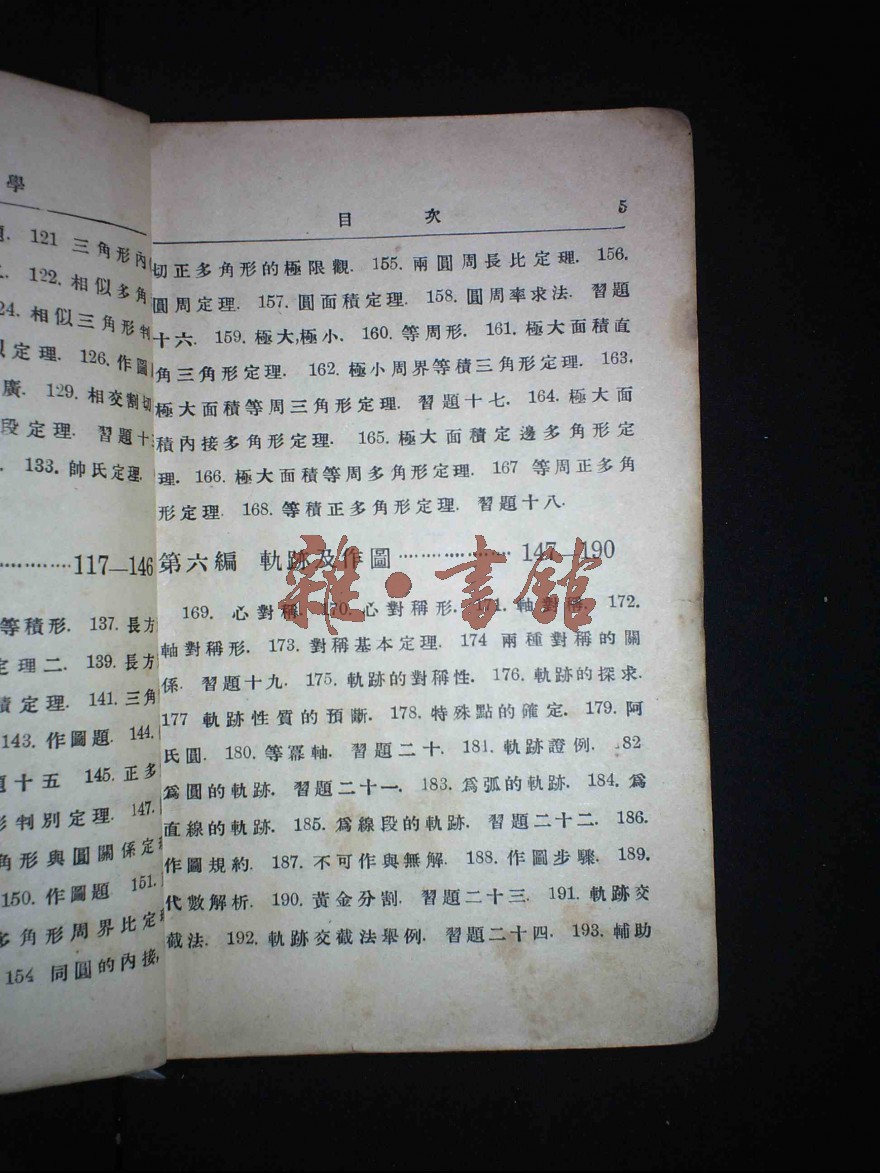 學
121 三角形內
122. 相似多角
24. 相似三角形判
定理. 126. 作圖
廣. 129. 相交割切
段定理. 習題十
133. 帥氏定理.
············117—146
等積形. 137. 長方
定理二. 139. 長方
積定理. 141. 三角
143. 作圖題. 144.
題十五 145. 正多
形判別定理. 147.
角形與圓關係定
150. 作圖題 151.
多角形周界比定
154 同圓的內接,
目 次 5
切正多角形的極限觀. 155. 兩圓周長比定理. 156.
圓周定理. 157. 圓面積定理. 158. 圓周率求法. 習題
十六. 159. 極大,極小. 160. 等周形. 161. 極大面積直
角三角形定理. 162. 極小周界等積三角形定理. 163.
極大面積等周三角形定理. 習題十七. 164. 極大面
積內接多角形定理. 165. 極大面積定邊多角形定
理. 166. 極大面積等周多角形定理. 167 等周正多角
形定理. 168. 等積正多角形定理. 習題十八.
第六編 軌跡及作圖 ·················· 147—190
169. 心對稱. 170. 心對稱形. 171. 軸對稱. 172.
軸對稱形. 173. 對稱基本定理. 174 兩種對稱的關
係. 習題十九. 175. 軌跡的對稱性. 176. 軌跡的探求.
177 軌跡性質的預斷. 178. 特殊點的確定. 179. 阿
氏圓. 180. 等冪軸. 習題二十. 181. 軌跡證例. 182
爲圓的軌跡. 習題二十一. 183. 爲弧的軌跡. 184. 爲
直線的軌跡. 185. 爲線段的軌跡. 習題二十二. 186.
作圖規約. 187. 不可作與無解. 188. 作圖步驟. 189.
代數解析. 190. 黃金分割. 習題二十三. 191. 軌跡交
截法. 192. 軌跡交截法舉例. 習題二十四. 193. 輔助
雜·書館